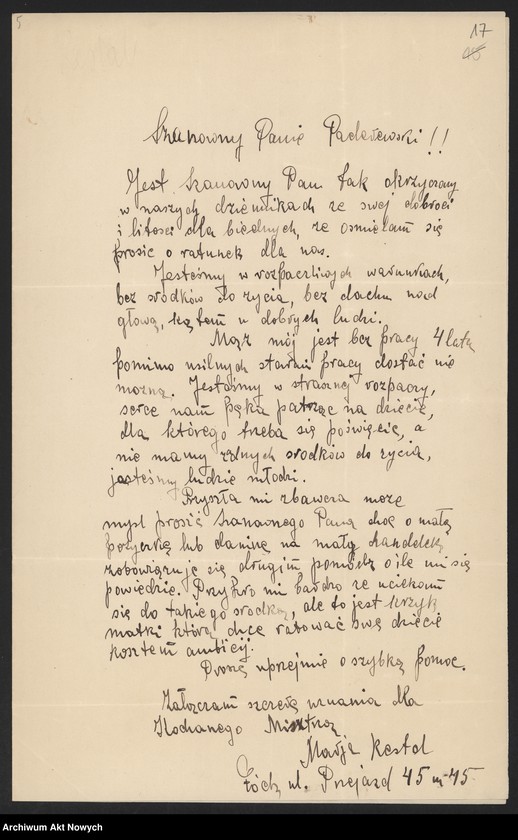 5
17
45
Szanowny Panie Paderewski!!
Jest Szanowny Pan tak okrzyczany
w naszych dziennikach ze swej dobroci
i litosci dla biednych, ze osmielam się
prosic o ratunek dla nas.
Jestesmy w rozpaczliwych warunkach,
bez srodków do zycia, bez dachu nad
głową, kątem u dobrych ludzi.
Mąz mój jest bez pracy 4 lata
pomimo usilnych starań pracy dostać nie
mozna. Jestesmy w strasznej rozpaczy,
serce nam pęka patrząc na dziecię,
dla którego trzeba się poświęcic, a
nie mamy zadnych srodków do zycia,
jestesmy ludzie młodzi.
Przyszła mi zbawcza moze
mysl prosić Szanownego Pana choc o małą
pozyczkę lub daninę na mały handelek,
zobowiązuję się drugim pomódz o ile mi się
powiedzie. Przykro mi bardzo ze uciekam
się do takiego srodka, ale to jest krzyk
matki która chce ratować swe dziecię
kosztem ambicij.
Proszę uprzejmie o szybką pomoc.
Załączam szczere uznania dla
Kochanego Mistrza
Marja Restol
Łódz ul. Przejazd 45 m 45.
Archiwum Akt Nowych